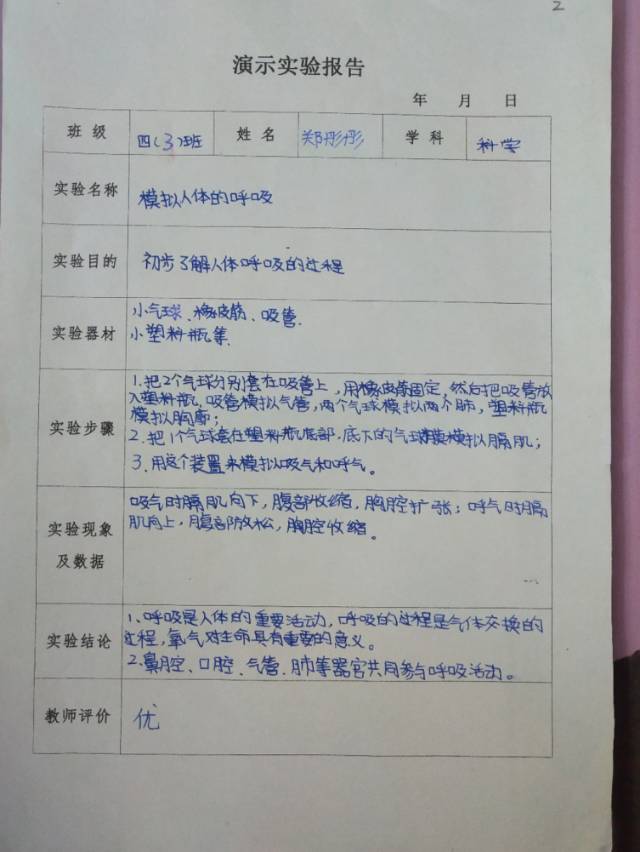 2
演示实验报告
年 月 日
班级 四(3)班 姓名 郑彤彤 学科 科学
实验名称 模拟人体的呼吸
实验目的 初步了解人体呼吸的过程
实验器材 小气球、橡皮筋、吸管、
小塑料瓶等
实验步骤 1.把2个气球分别套在吸管上,用橡皮筋固定,然后把吸管放
入塑料瓶,吸管模拟气管,两个气球模拟两个肺,塑料瓶
模拟胸廓;
2.把1个气球套在塑料瓶底部,底下的气球膜模拟膈肌;
3.用这个装置来模拟吸气和呼气。
实验现象及数据 吸气时膈肌向下,腹部收缩,胸腔扩张;呼气时膈
肌向上,腹部放松,胸腔收缩。
实验结论 1、呼吸是人体的重要活动,呼吸的过程是气体交换的
过程,氧气对生命具有重要的意义。
2.鼻腔、口腔、气管、肺等器官共同参与呼吸活动。
教师评价 优